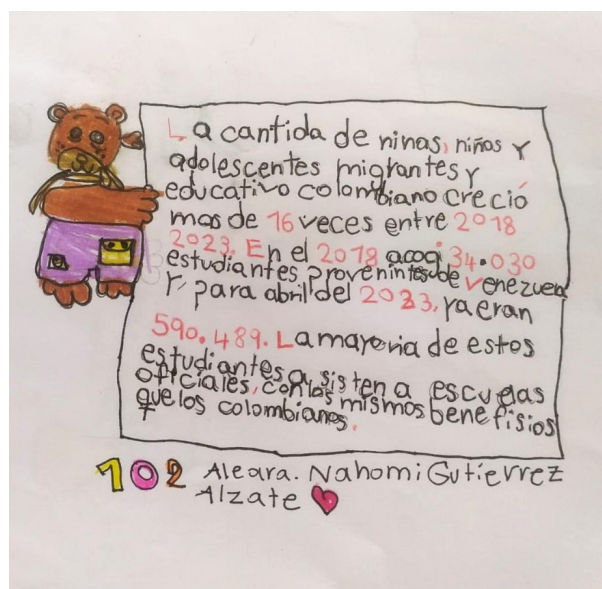 La cantida de ninas, niños y
adolescentes migrantes y
educativo colombiano creció
mas de 16 veces entre 2018
2023. En el 2018 acogi 34.030
estudiantes provenintesde Venezuea
y para abril del 2023, ya eran
590.489. La mayoria de estos
estudiantes asisten a escuelas
oficiales, con los mismos benefisios
que los colombianos.
102 Aleara. Nahomi Gutierrez
Alzate